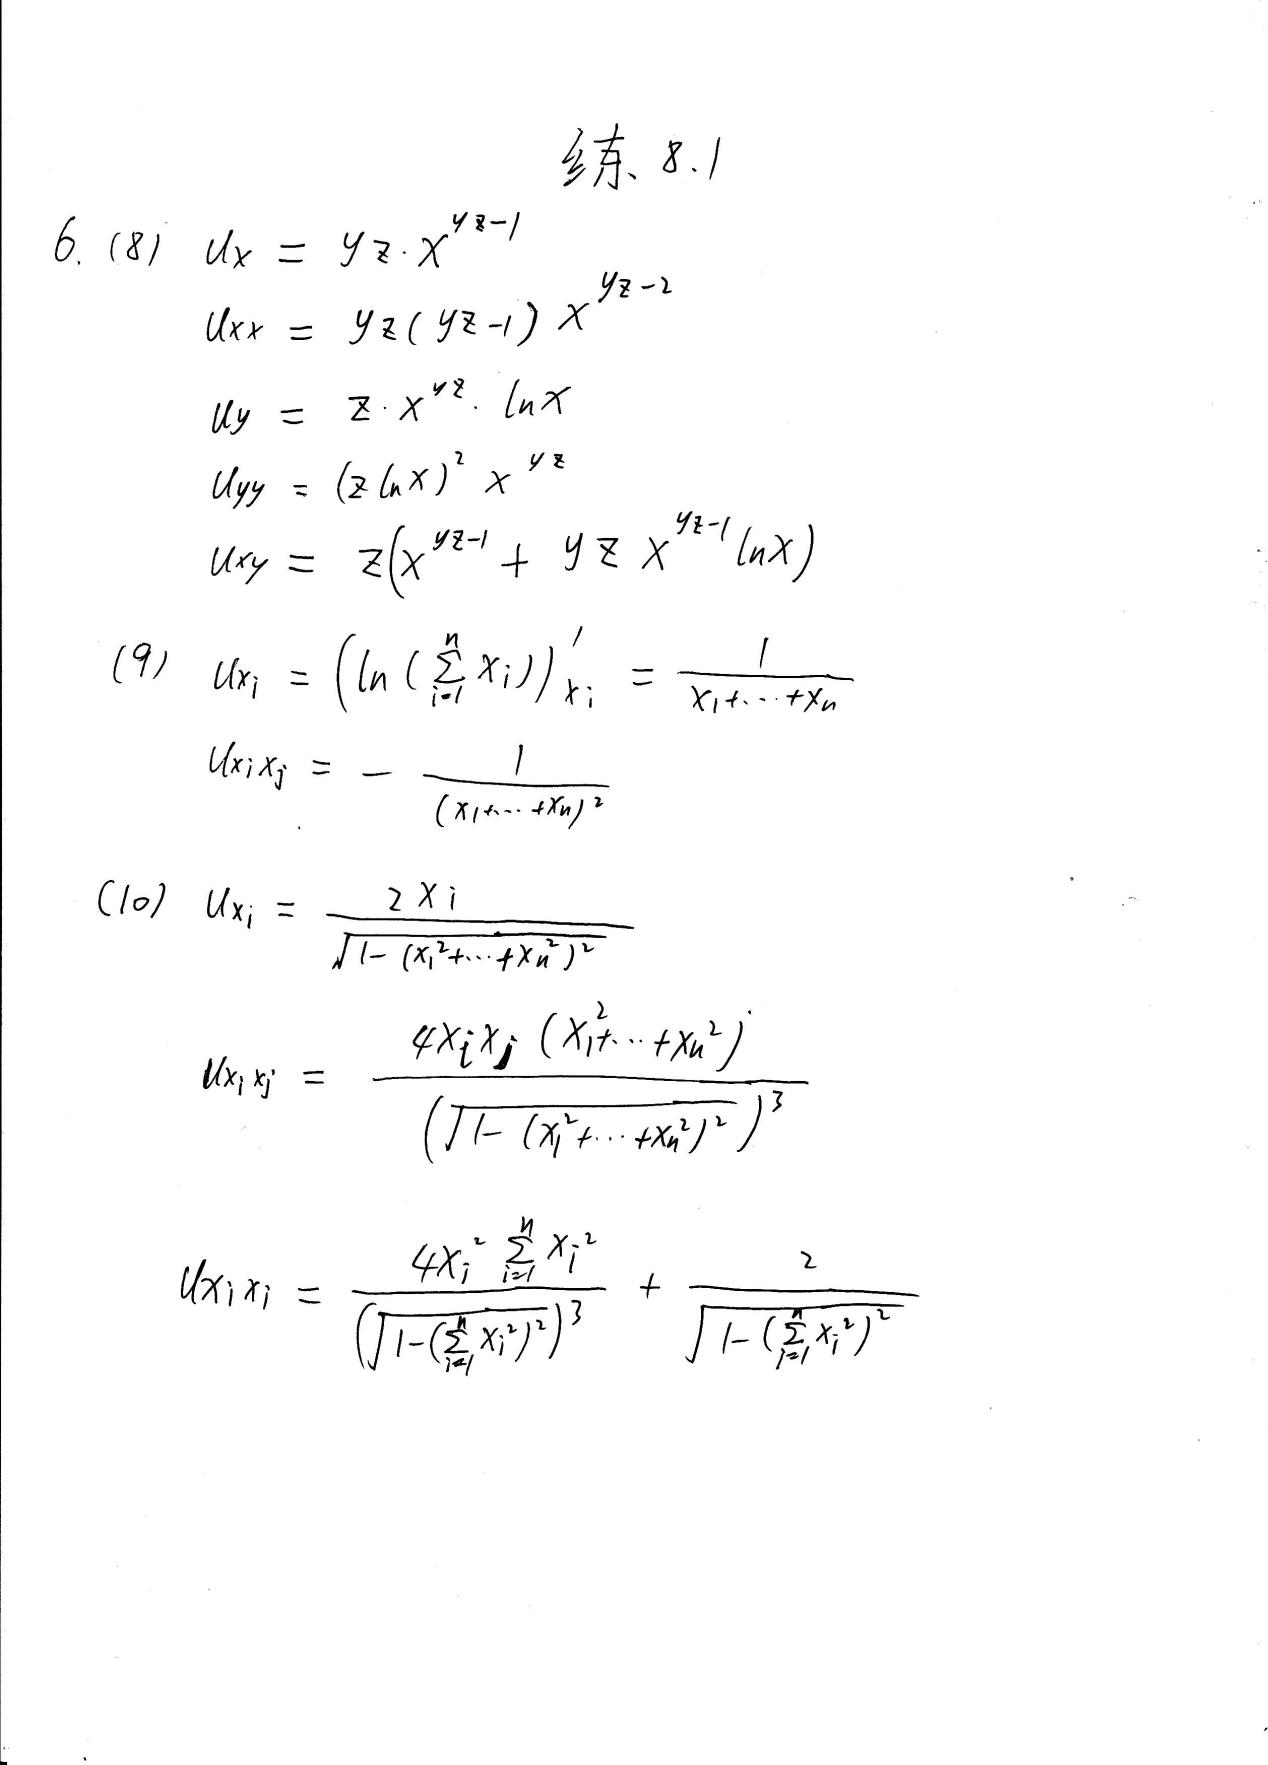 练 8.1
6. (8) Ux = yz·x^{yz-1}
Uxx = yz(yz-1) x^{yz-2}
Uy = z·x^{yz}·lnx
Uyy = (z lnx)^2 x^{yz}
Uxy = z(x^{yz-1} + yz x^{yz-1} lnx)
(9) U_{x_i} = (ln(\sum_{i=1}^{n} x_i))'_{x_i} = \frac{1}{x_1+...+x_n}
U_{x_i x_j} = - \frac{1}{(x_1+...+x_n)^2}
(10) U_{x_i} = \frac{2x_i}{\sqrt{1-(x_1^2+...+x_n^2)^2}}
U_{x_i x_j} = \frac{4x_i x_j (x_1^2+...+x_n^2)}{(\sqrt{1-(x_1^2+...+x_n^2)^2})^3}
U_{x_i x_i} = \frac{4x_i^2 \sum_{i=1}^{n} x_i^2}{(\sqrt{1-(\sum_{i=1}^{n} x_i^2)^2})^3} + \frac{2}{\sqrt{1-(\sum_{i=1}^{n} x_i^2)^2}}